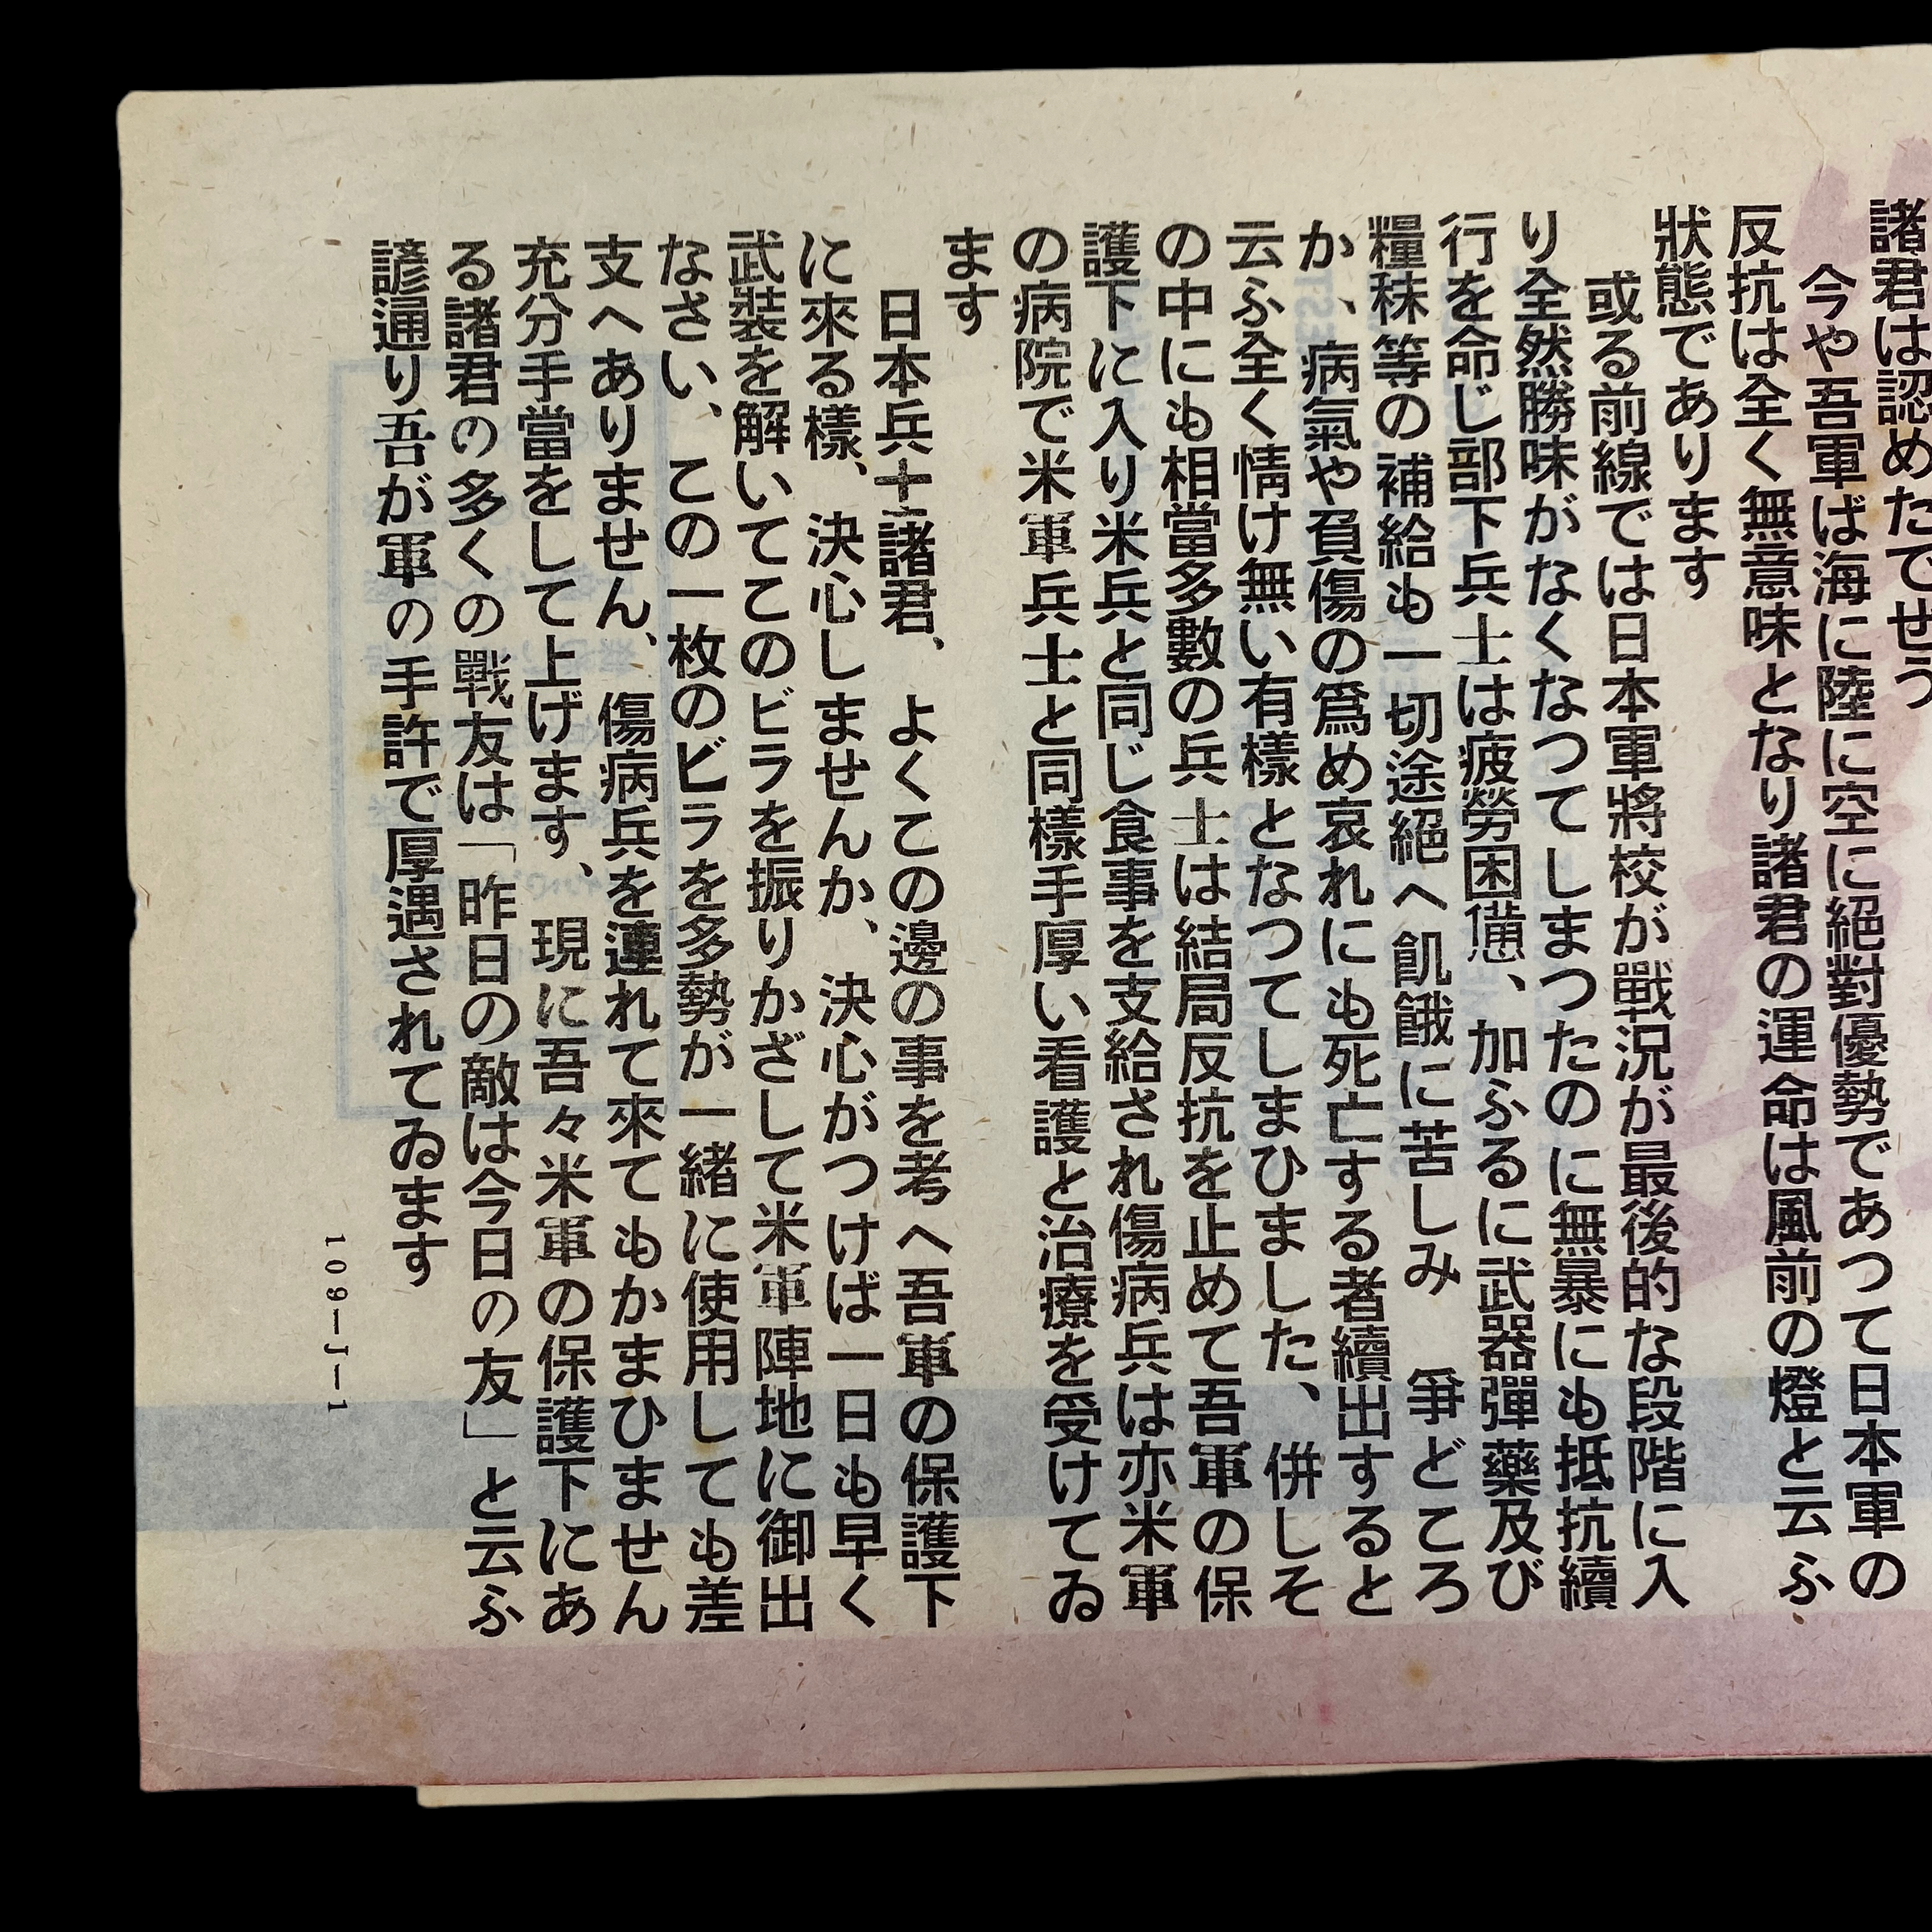 諸君は認めたでせう
今や吾軍ば海に陸に空に絕對優勢であつて日本軍の
反抗は全く無意味となり諸君の運命は風前の燈と云ふ
狀態であります
或る前線では日本軍將校が戰況が最後的な段階に入
り全然勝味がなくなつてしまつたのに無暴にも抵抗續
行を命じ部下兵士は疲勞困憊、加ふるに武器彈藥及び
糧秣等の補給も一切途絕へ飢餓に苦しみ 爭どころ
か、病氣や負傷の爲め哀れにも死亡する者續出すると
云ふ全く情け無い有樣となつてしまひました、併しそ
の中にも相當多數の兵士は結局反抗を止めて吾軍の保
護下に入り米兵と同じ食事を支給され傷病兵は亦米軍
の病院で米軍兵士と同樣手厚い看護と治療を受けてゐ
ます
日本兵士諸君、よくこの邊の事を考へ吾軍の保護下
に來る樣、決心しませんか、決心がつけば一日も早く
武裝を解いてこのビラを振りかざして米軍陣地に御出
なさい、この一枚のビラを多勢が一緒に使用しても差
支へありません、傷病兵を連れて來てもかまひません
充分手當をして上げます、現に吾々米軍の保護下にあ
る諸君の多くの戰友は「昨日の敵は今日の友」と云ふ
諺通り吾が軍の手許で厚遇されてゐます
109-J-1